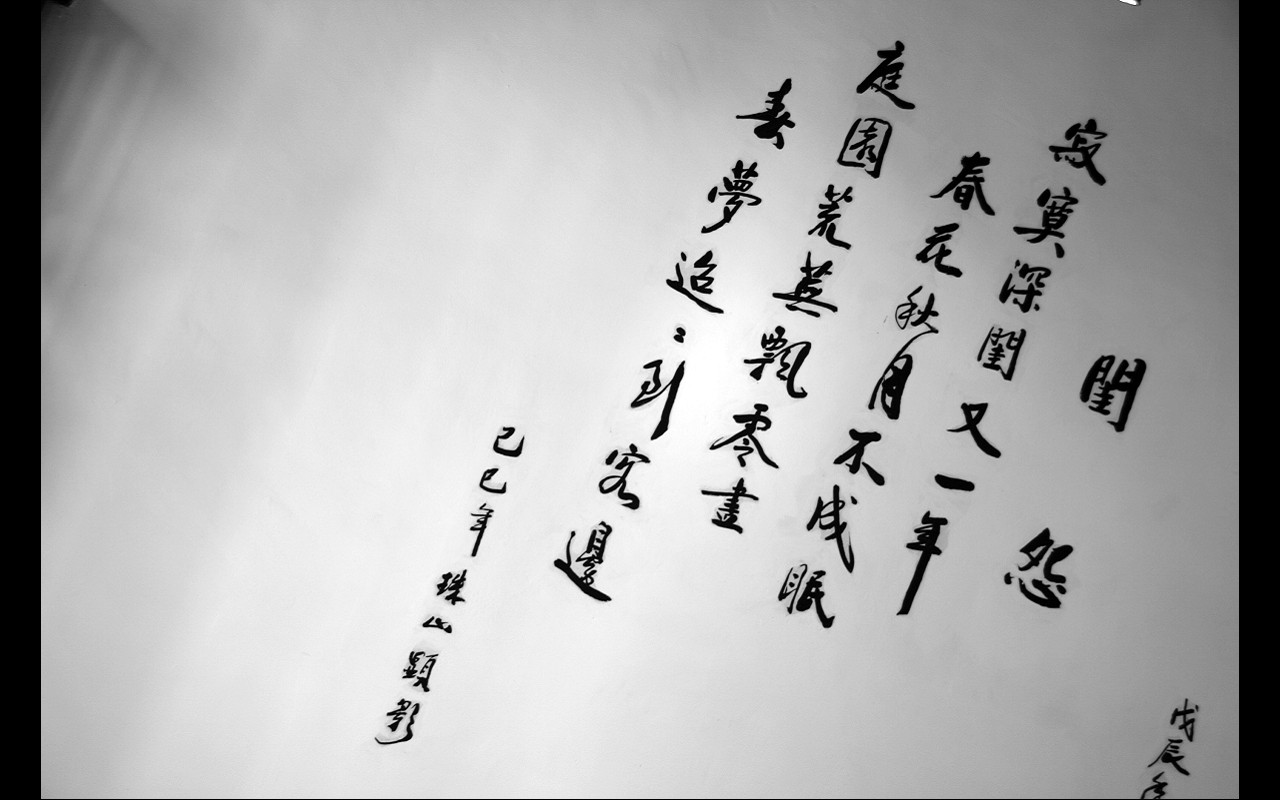 閨怨
寂寞深閨又一年
春花秋月不成眠
庭園荒蕪飄零盡
春夢迢〻到客邊
己巳年珠山顯影
戊辰